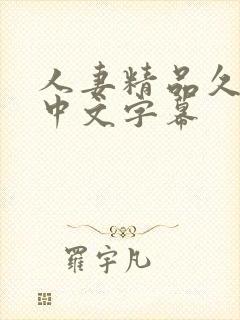 人妻精品久
中文字幕
羅宇凡